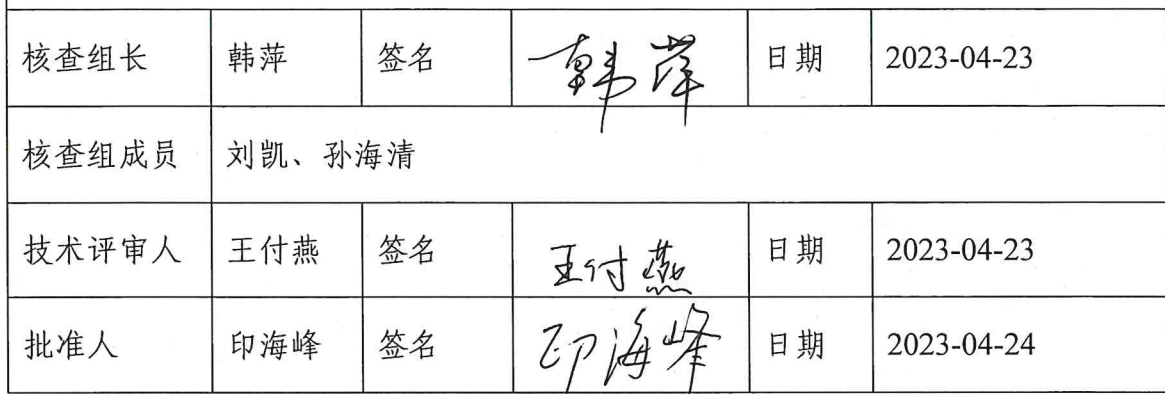 核查组长 韩萍 签名 韩萍 日期 2023-04-23
核查组成员 刘凯、孙海清
技术评审人 王付燕 签名 王付燕 日期 2023-04-23
批准人 印海峰 签名 印海峰 日期 2023-04-24